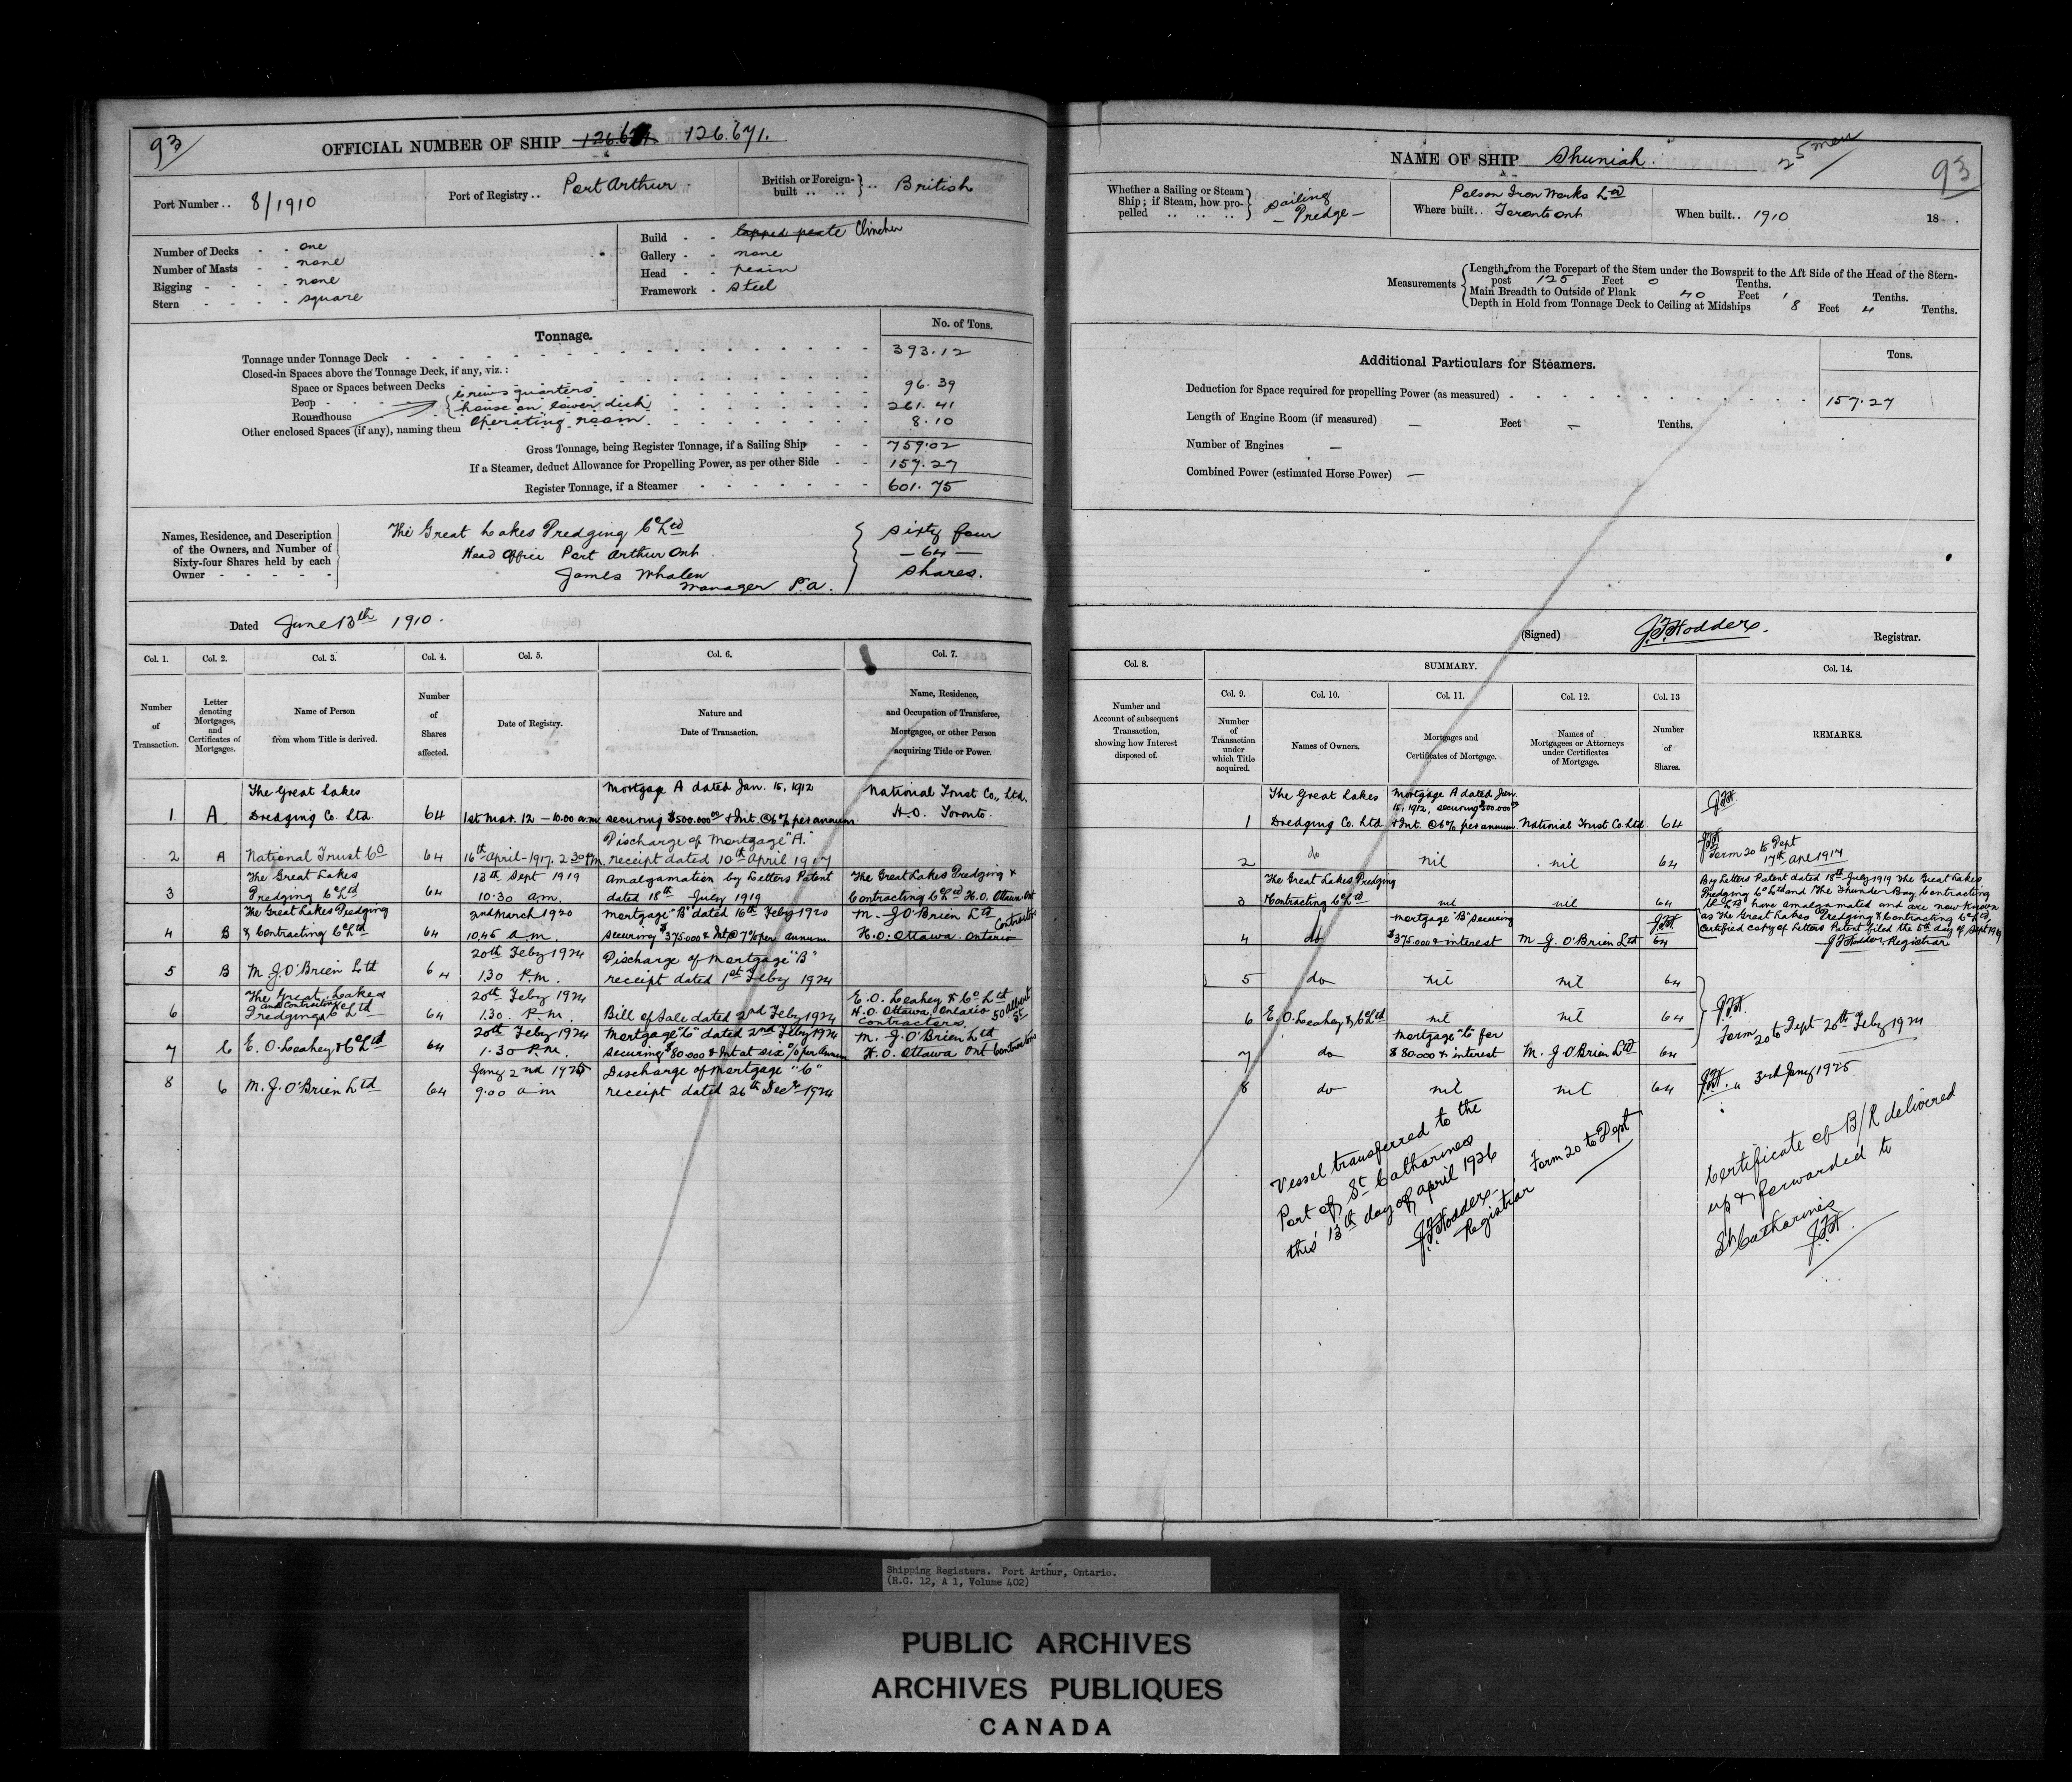 93
OFFICIAL NUMBER OF SHIP 126.671.
Port Number .. 8/1910
Port of Registry .. Port Arthur
British or Foreign-built .. .. } .. British
Number of Decks - - one
Number of Masts - - none
Rigging - - - - none
Stern - - - - square
Build - - lapped plate Clincher
Gallery - - none
Head - - plain
Framework - steel
Tonnage.
No. of Tons.
Tonnage under Tonnage Deck 393.12
Closed-in Spaces above the Tonnage Deck, if any, viz.:
Space or Spaces between Decks
Poop crews quarters 96.39
Roundhouse house on lower deck 261.41
Other enclosed Spaces (if any), naming them operating room 8.10
Gross Tonnage, being Register Tonnage, if a Sailing Ship 759.02
If a Steamer, deduct Allowance for Propelling Power, as per other Side 157.27
Register Tonnage, if a Steamer 601.75
Names, Residence, and Description of the Owners, and Number of Sixty-four Shares held by each Owner
The Great Lakes Dredging Co Ltd
Head Office Port Arthur Ont.
James Whalen
Manager P.A.
Sixty four
— 64 —
Shares.
Dated June 13th 1910.
Col. 1. Col. 2. Col. 3. Col. 4. Col. 5. Col. 6. Col. 7.
Number of Transaction.
Letter denoting Mortgages, and Certificates of Mortgages.
Name of Person from whom Title is derived.
Number of Shares affected.
Date of Registry.
Nature and Date of Transaction.
Name, Residence, and Occupation of Transferee, Mortgagee, or other Person acquiring Title or Power.
1 A The Great Lakes Dredging Co. Ltd. 64 1st Mar. 12 — 10.00 a.m. Mortgage A dated Jan. 15, 1912 securing $500.000.00 & Int. @ 6% per annum. National Trust Co., Ltd. H.O. Toronto.
2 A National Trust Co 64 16th April-1917. 2.30 P.m. Discharge of Mortgage "A." receipt dated 10th April 1917
3 The Great Lakes Dredging Co Ltd 64 13th Sept 1919 10.30 am. Amalgamation by Letters Patent dated 18th July 1919 The Great Lakes Dredging & Contracting Co Ltd H.O. Ottawa Ont
4 B The Great Lakes Dredging & Contracting Co Ltd 64 2nd March 1920 10.45 am. Mortgage "B" dated 16th Feby 1920 securing $375.000 & Int @ 7% per annum M. J. O'Brien Ltd Contractors H.O. Ottawa. Ontario
5 B M. J. O'Brien Ltd 64 20th Feby 1924 1.30 P.m. Discharge of Mortgage "B" receipt dated 1st Feby 1924
6 The Great Lakes Dredging and Contracting Co Ltd 64 20th Feby 1924 1.30. P.m. Bill of Sale dated 2nd Feby 1924 E. O. Leahey & Co Ltd H.O. Ottawa Ontario 50 Albert St Contractors
7 C E. O. Leahey & Co Ltd 64 20th Feby 1924 1.30 P.m. Mortgage "C" dated 2nd Feby 1924 securing $80.000 & Int at six % per Annum M. J. O'Brien Ltd H.O. Ottawa Ont Contractors
8 C M. J. O'Brien Ltd 64 Jany 2nd 1925 9.00 am Discharge of Mortgage "C" receipt dated 26th Decr 1924
NAME OF SHIP Shuniah.
25 men
93
Whether a Sailing or Steam Ship; if Steam, how propelled } Sailing — Dredge —
Polson Iron Works Ltd
Where built.. Toronto Ont
When built.. 1910
18
Measurements
Length from the Forepart of the Stem under the Bowsprit to the Aft Side of the Head of the Stern-
post 125 Feet 0 Tenths.
Main Breadth to Outside of Plank 40 Feet 1 Tenths.
Depth in Hold from Tonnage Deck to Ceiling at Midships 8 Feet 4 Tenths.
Additional Particulars for Steamers.
Tons.
Deduction for Space required for propelling Power (as measured) 157.27
Length of Engine Room (if measured) — Feet — Tenths.
Number of Engines —
Combined Power (estimated Horse Power) —
(Signed) J.F. Hodder. Registrar.
Col. 8. SUMMARY. Col. 14.
Col. 9. Col. 10. Col. 11. Col. 12. Col. 13
Number and Account of subsequent Transaction, showing how Interest disposed of.
Number of Transaction under which Title acquired.
Names of Owners.
Mortgages and Certificates of Mortgage.
Names of Mortgagees or Attorneys under Certificates of Mortgage.
Number of Shares.
REMARKS.
1 The Great Lakes Dredging Co. Ltd. Mortgage A dated Jan. 15, 1912, securing $500.000.00 & Int. @ 6% per annum. National Trust Co. Ltd. 64 J.F.H.
2 do nil nil 64 J.F.H. Form 20 to Dept 17th Apl 1917
3 The Great Lakes Dredging & Contracting Co Ltd nil nil 64
By Letters Patent dated 18th July 1919 The Great Lakes
Dredging Co Ltd and The Thunder Bay Contracting
Co Ltd, have amalgamated and are now known
as The Great Lakes Dredging & Contracting Co Ltd,
Certified copy of Letters Patent filed the 5th day of Sept 1919
J.F. Hodder, Registrar
4 do Mortgage "B" securing $375.000 & interest M. J. O'Brien Ltd 64 J.F.H.
5 do nil nil 64
6 E. O. Leahey & Co Ltd nil nil 64
J.F.H.
Form 20 to Dept 20th Feby 1924
7 do Mortgage "C" for $80.000 & interest M. J. O'Brien Ltd 64
8 do nil nil 64 J.F.H. " 3rd Jany 1925
Vessel transferred to the
Port of St Catharines
this 13th day of April 1926
J.F. Hodder-
Registrar
Form 20 to Dept
Certificate of B/R delivered
up & forwarded to
St Catharines
J.F.H.
Shipping Registers. Port Arthur, Ontario.
(R.G. 12, A 1, Volume 402)
PUBLIC ARCHIVES
ARCHIVES PUBLIQUES
CANADA